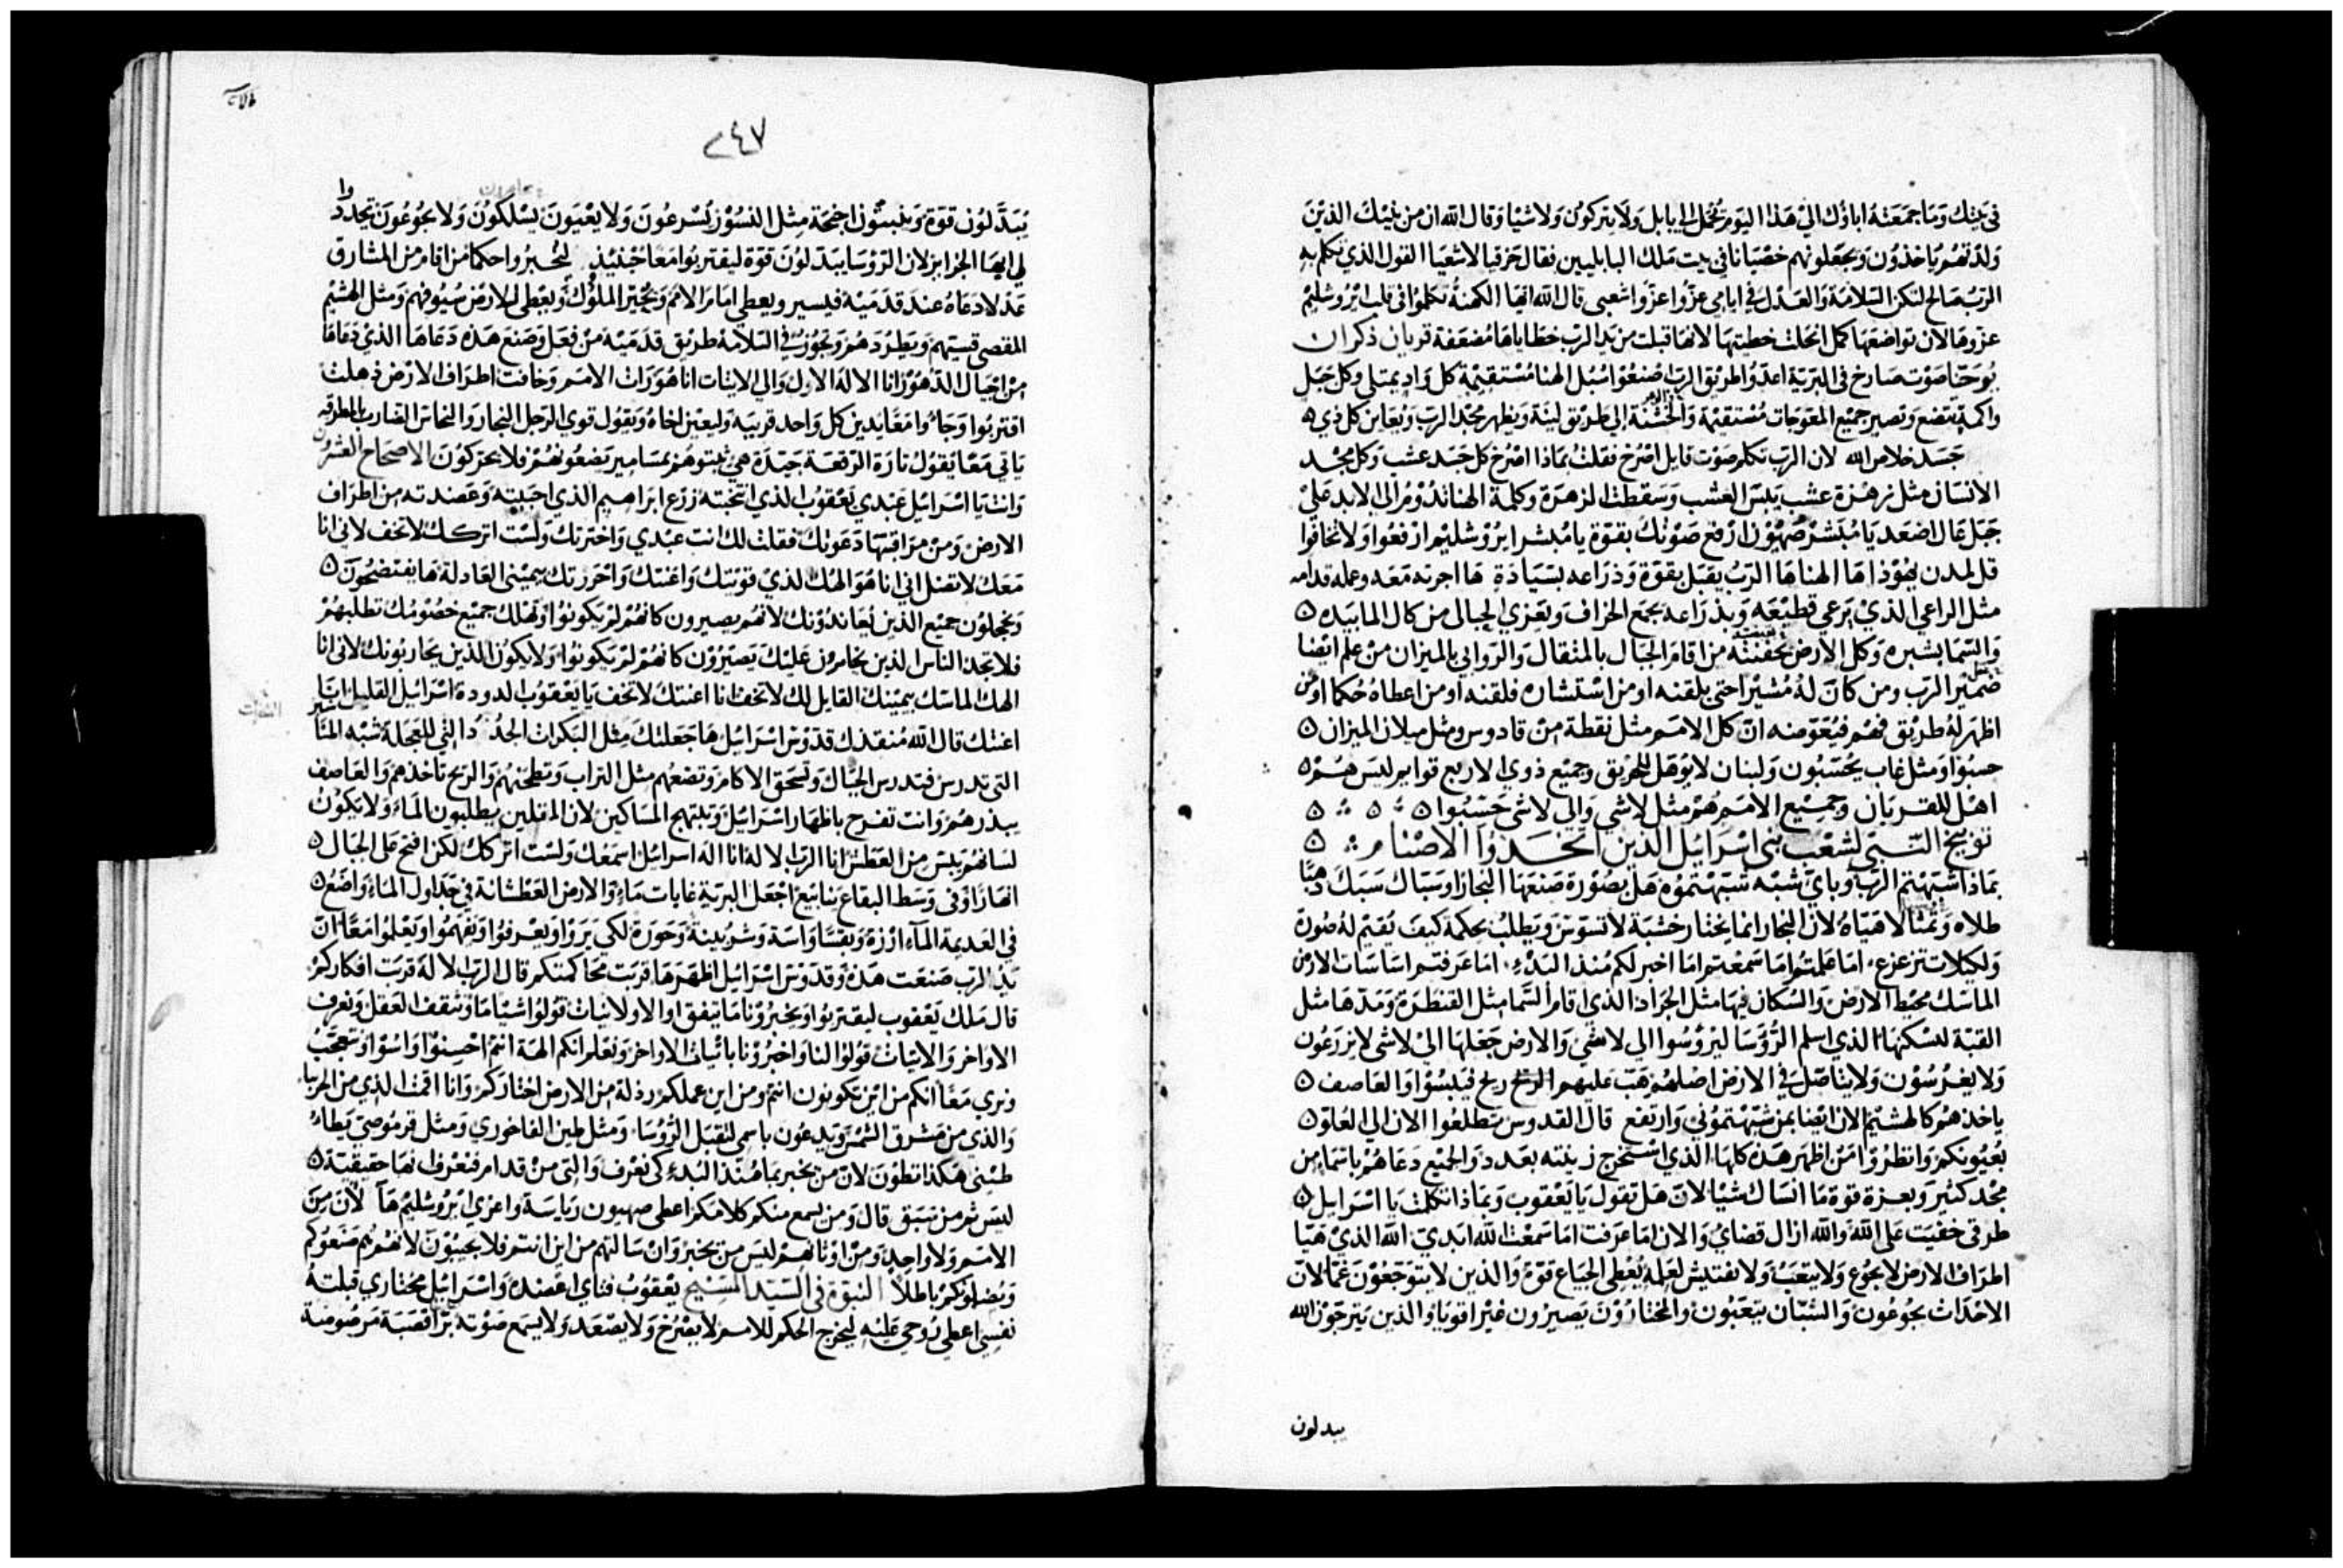 في بيتك وما جمعته اباوك الي هذا اليوم يحمل الي بابل ولا يتركون ولا شيا وقال الله ان من بنيك الذين
ولدتهم ياخذون ويجعلونهم خصيانا في بيت ملك البابليين فقال حزقيا لاشعيا القول الذي تكلم به
الرب صالح لتكن السلامة والعدل في ايامي عزوا عزوا شعبي قال الله ايها الكهنة تكلموا في قلب ايروشليم
عزوها لان تواضعها كمل انحلت خطيتها لانها قبلت من يد الرب خطاياها مضعفة قربان ذكران
يوحنا صوت صارخ في البرية اعدوا طريق الرب اصنعوا سبل الهنا مستقيمة كل واد يمتلي وكل جبل
واكمة يتضع وتصير جميع المعوجات مستقيمة والخشنة الي طريق لينة ويظهر مجد الرب ويعاين كل ذي ه
جسد خلاص الله لان الرب تكلم صوت قايل اصرخ فقلت بماذا اصرخ كل جسد عشب وكل مجد
الانسان مثل زهرة عشب يبس العشب وسقطت الزهرة وكلمة الهنا تدوم الي الابد علي
جبل عال اصعد يا مبشر صهيون ارفع صوتك بقوة يا مبشر ايروشليم ارفعوا ولا تخافوا
قل لمدن يهوذا ها الهنا ها الرب يقبل بقوة وذراعه بسيادة ها اجرته معه وعمله قدامه
مثل الراعي الذي يرعي قطيعه وبذراعه يجمع الخراف ويعزي الحبالي من كال الما بيده ه
والسما بشبره وكل الارض بحفنته من اقام الجبال بالمثقال والروابي بالميزان من علم ايضا
ضمير الرب ومن كان له مشيرا حتي يلقنه او من استشاره فلقنه او من اعطاه حكما او من
اظهر له طريق فهم فيعوضه ان كل الامم مثل نقطة من قادوس ومثل ميلان الميزان ه
حسبوا ومثل غاب يحسبون ولبنان لا يوهل للحريق وجميع ذوي الاربع قوايم ليس هم ه
اهل للقربان وجميع الامم هم مثل لاشي والي لاشي حسبوا ه ه ه
توبيخ النبي لشعب بني اسرائيل الدين اتخدوا الاصنام ه
بماذا شبهتم الرب وباي شبه شبهتموه هل بصورة صنعها النجار او سباك سبك ذهبا
طلاه وتمثالا هياه لان النجار انما يختار خشبة لا تسوس ويطلب بحكمة كيف يقيم له صورة
ولكيلا تتزعزع اما علمتوا ما سمعتم اما اخبر لكم منذ البدء اما عرفتم اساسات الارض
الماسك محيط الارض والسكان فيها مثل الجراد الذي اقام السما مثل القنطرة ومدها مثل
القبة لتسكنها الذي اسلم الرؤسا ليرؤسوا الي لاشي والارض جعلها الي لاشي لا يزرعون
ولا يغرسون ولا يتاصل في الارض اصلهم هب عليهم الريح ريح فيبسوا والعاصف ه
ياخذهم كالهشيم الان ايضا بمن شبهتموني وارتفع قال القدوس تطلعوا الان الي العلو ه
بعيونكم وانظروا من اظهر هذه كلها الذي استخرج زينته بعدد والجميع دعاهم باسما من
مجد كثير وبعزة قوة ما انساك شيا لان هل تقول يا يعقوب وبماذا تكلمت يا اسرايل ه
طرقي خفيت علي الله والله ازال قضاي والان اما عرفت اما سمعت الله ابدي الله الذي هيا
اطراف الارض لا يجوع ولا يتعب ولا تفتيش لعلمه يعطي الجياع قوة والذين لا يتوجعون غما لان
الاحداث يجوعون والشبان يتعبون والمختارون يصيرون غير اقويا والذين يترجون الله
يبدلون
٢٤٧
يبدلون قوة وينبتون اجنحة مثل النسور يسرعون ولا يعيون يسلكون ولا يجوعون تجددوا
لي ايها الجزاير لان الرؤسا يبدلون قوة ليقتربوا معا حينيذ ليخبروا حكما من اقام من المشارق
عدلا دعاه عند قدميه فيسير ويعطي امام الامم ويحير الملوك ويعطي للارض سيوفهم ومثل الهشيم
المقصي قسيهم ويطردهم وتجوز في السلامة طريق قدميه من فعل وصنع هذه دعاها الذي دعاها
من اجيال الدهور انا الاله الاول والي الاتيات انا هو رات الامم وخافت اطراف الارض ذهلت
اقتربوا وجاوا معا يدين كل واحد قريبه وليعين اخاه ويقول قوي الرجل النجار والنحاس الضارب بالمطرقه
ياتي معا يقول تارة الرقعة جيدة هي ثبتوهم بمسامير يضعونهم فلا يحركون الاصحاح العشرون
وانت يا اسرائيل عبدي يعقوب الذي انتخبته زرع ابراهيم الذي احببته وعضدته من اطراف
الارض ومن مراقبتها دعوتك فقلت لك انت عبدي واخترتك ولست اتركك لا تخف لاني انا
معك لا تضل اني انا هو الهك الذي قويتك واعنتك واحرزتك بيميني العادلة ها يفتضحون ه
ويخجلون جميع الذين يعاندونك لانهم يصيرون كانهم لم يكونوا وتهلك جميع خصومك تطلبهم
فلا تجد الناس الذين يخامرون عليك يصيرون كانهم لم يكونوا ولا يكون الذين يحاربونك لاني انا
الهك الماسك بيمينك القايل لك لا تخف انا اعنتك لا تخف يا يعقوب الدودة اسرائيل القليل انا
اعنتك قال الله منقذك قدوس اسرائيل ها جعلتك مثل البكرات الجدد التي للعجلة شبه المناشير
التي تدرس فتدرس الجبال وتسحق الاكام وتضعهم مثل التراب وتطحنهم والريح تاخذهم والعاصف
يبذرهم وانت تفرح باظهار اسرائيل ويبتهج المساكين لان المقلين يطلبون الماء ولا يكون
لسانهم يبس من العطش انا الرب الاله انا اله اسرائيل اسمعك ولست اتركك لكن افتح علي الجبال ه
انهارا وفي وسط البقاع ينابيع اجعل البرية غابات ماء والارض العطشانة في جداول الماء واضع ه
في العديمة الماء ارزة وبقسا واسة وشربينة وحورة لكي يروا ويعرفوا ويفهموا ويعلموا معا ان
يد الرب صنعت هذه وقدوس اسرائيل اظهرها قربت محاكمتكم قال الرب الاله قربت افكاركم
قال ملك يعقوب ليقتربوا ويخبرونا ما يتفق او الاولانيات قولوا شيا ما وتثقف العقل ونعرف
الاواخر والاتيات قولوا لنا واخبرونا باتيات الاواخر ونعلم انكم الهة انتم احسنوا واسوا ونتعجب
ونري معا انكم من اين تكونون انتم ومن اين عملكم رذلة من الارض اختاركم وانا اقمت الذي من الجربيا
والذي من مشرق الشمس ويدعون باسمي لتقبل الرؤسا ومثل طين الفاخوري ومثل قرموصي يطا
طيني هكذا تطون لان من يخبر بما منذ البدء كي نعرف والتي من قدام فنعرف انها حقيقية ه
ليس ثم من سبق قال ومن يسمع منكم كلامكم اعطي صهيون رياسة واعزي ايروشليم ها لان من
الامم ولا واحد ومن اوثانهم ليس من يخبر وان سالتهم من اين انتم فلا يجيبون لانهم هم صنعوكم
ويضلونكم باطلا النبوة في السيد المسيح يعقوب فتاي اعضده واسرائيل مختاري قبلته
نفسي اعطي روحي عليه ليخرج الحكم للامم لا يصرخ ولا يصعد ولا يسمع صوته برا قصبة مرضوضة